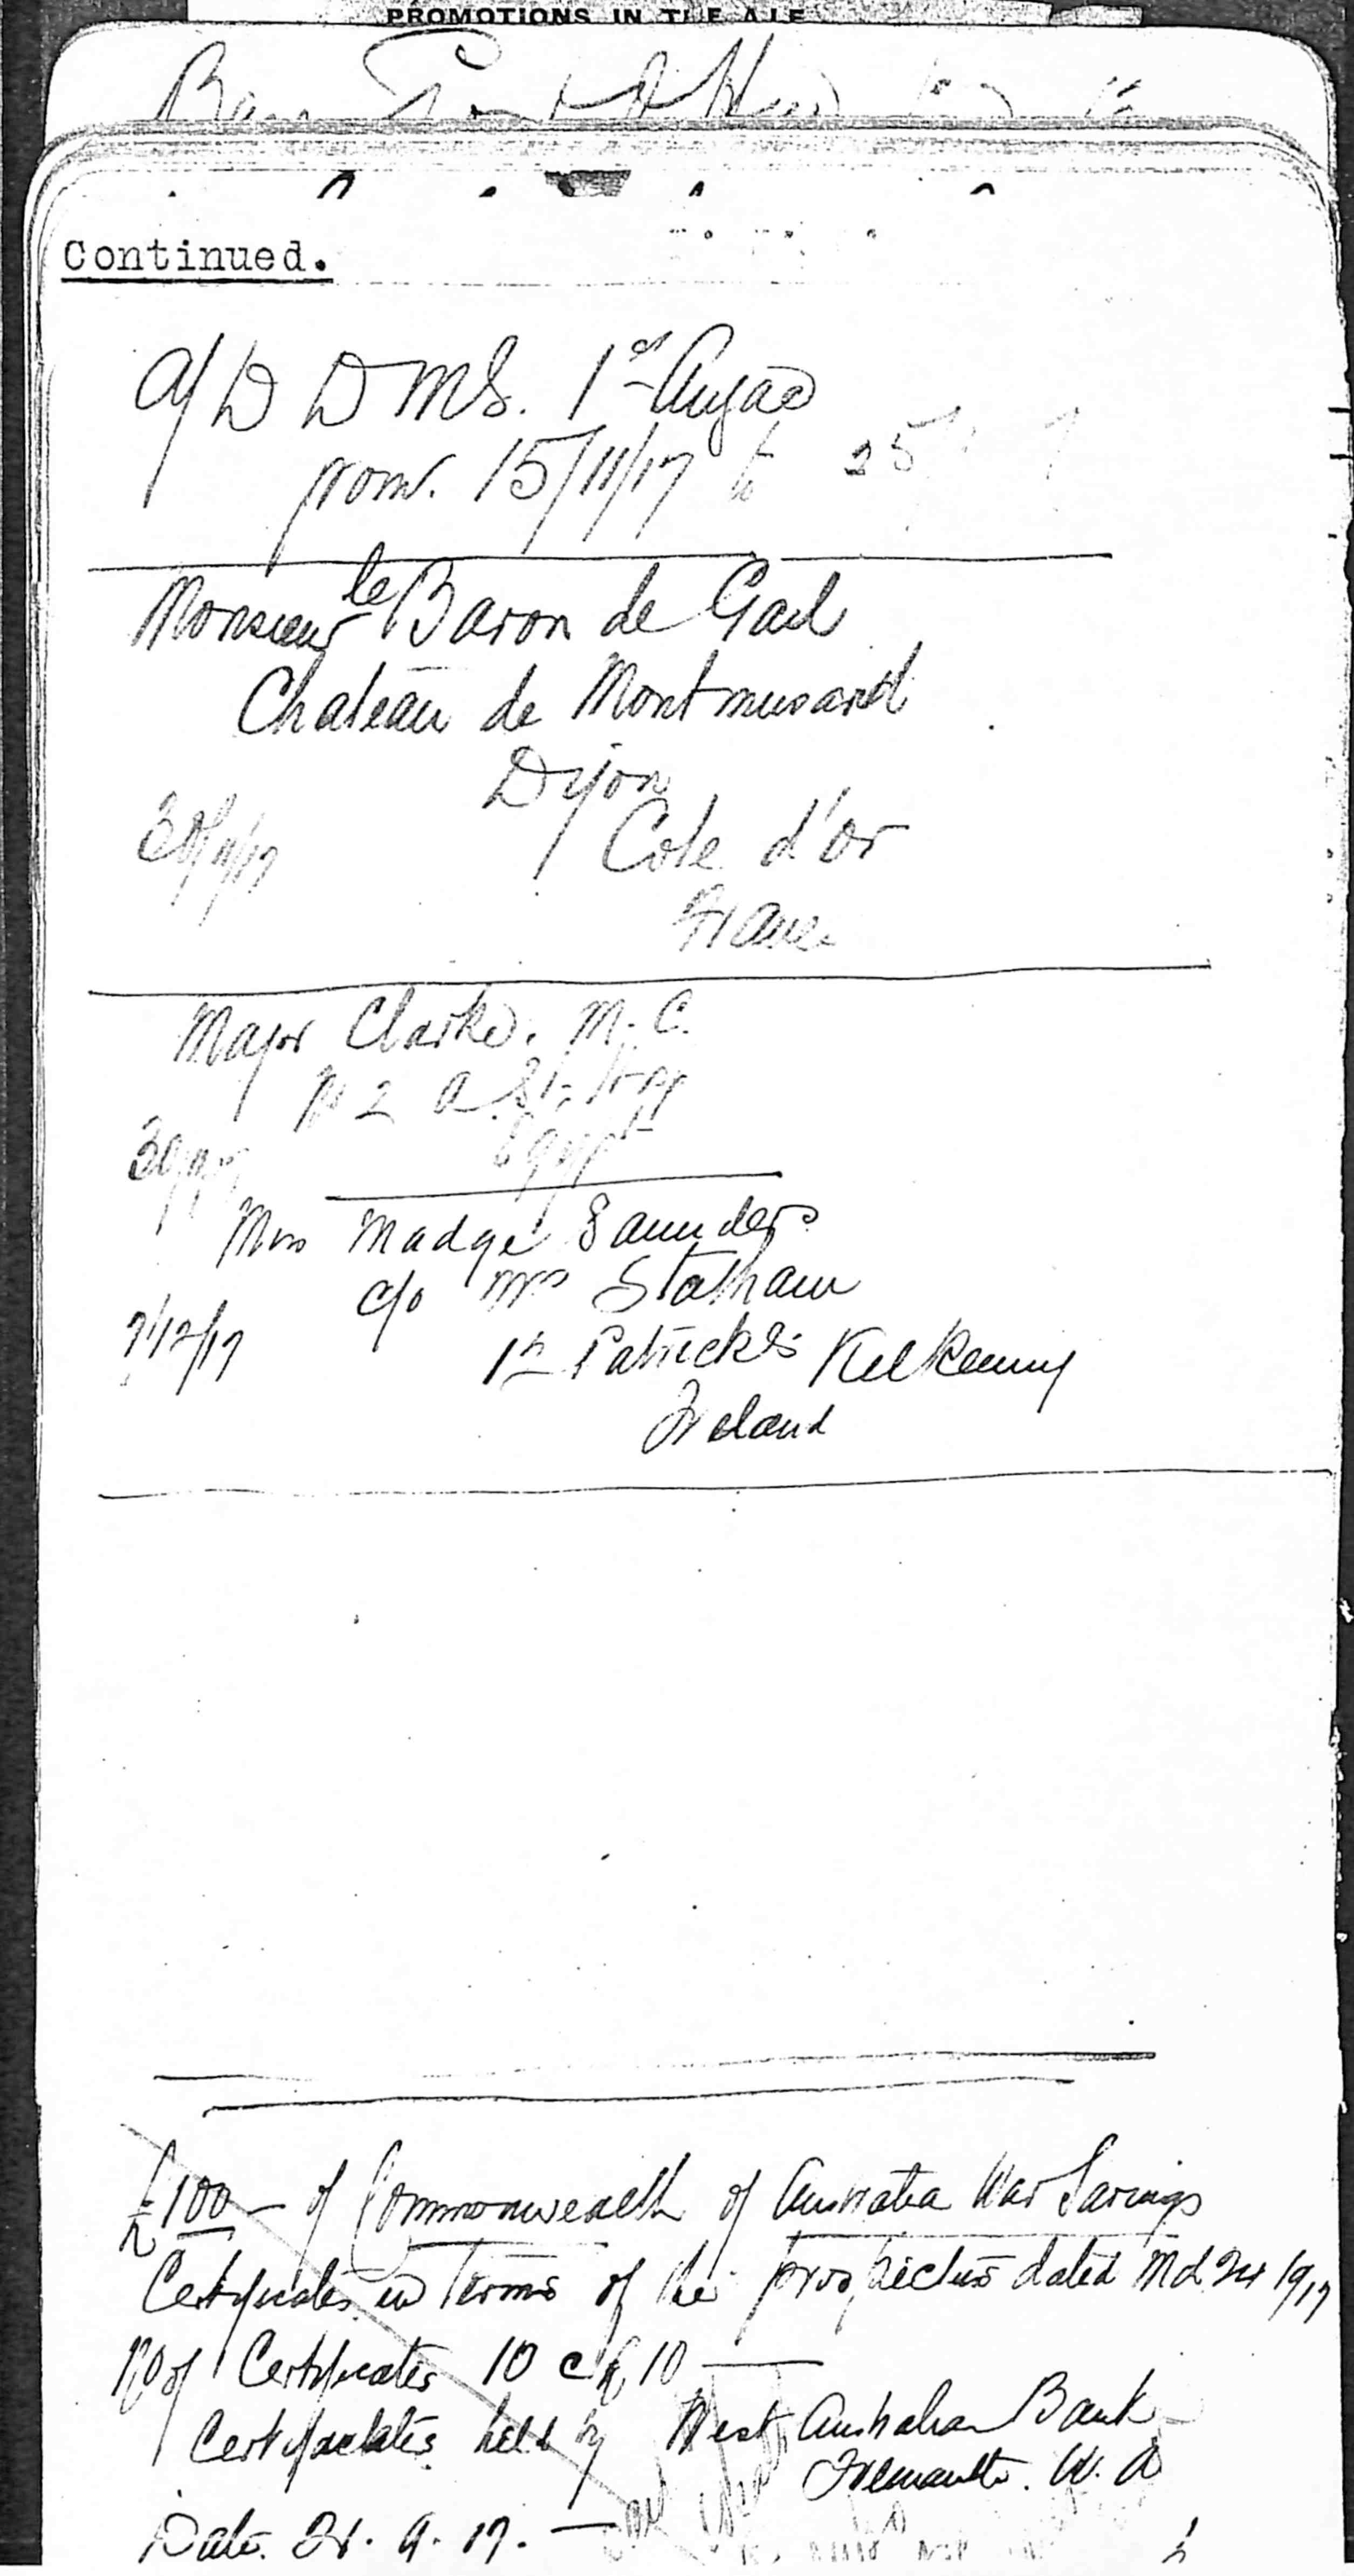 PROMOTIONS IN THE A.I.F.
Continued.
a/D D M S. 1st Anzac
from. 15/11/17 to 25
Monsieur le Baron de Gail
Chateau de Montmusard
Dijon
Cote d'or
30/11/17
France
Major Clarke. M. C.
No 2 A. St. Hpl
Egypt
30/11/17
Miss Madge Saunders
c/o Mrs Statham
7/12/17
St Patricks Kilkenny
Ireland
£100 - of Commonwealth of Australia War Savings
Certificates in terms of the prospectus dated
No of Certificates 10 @ £10
Certificates held by West Australian Bank
Fremantle. W. A
Date. 21. 9. 17.